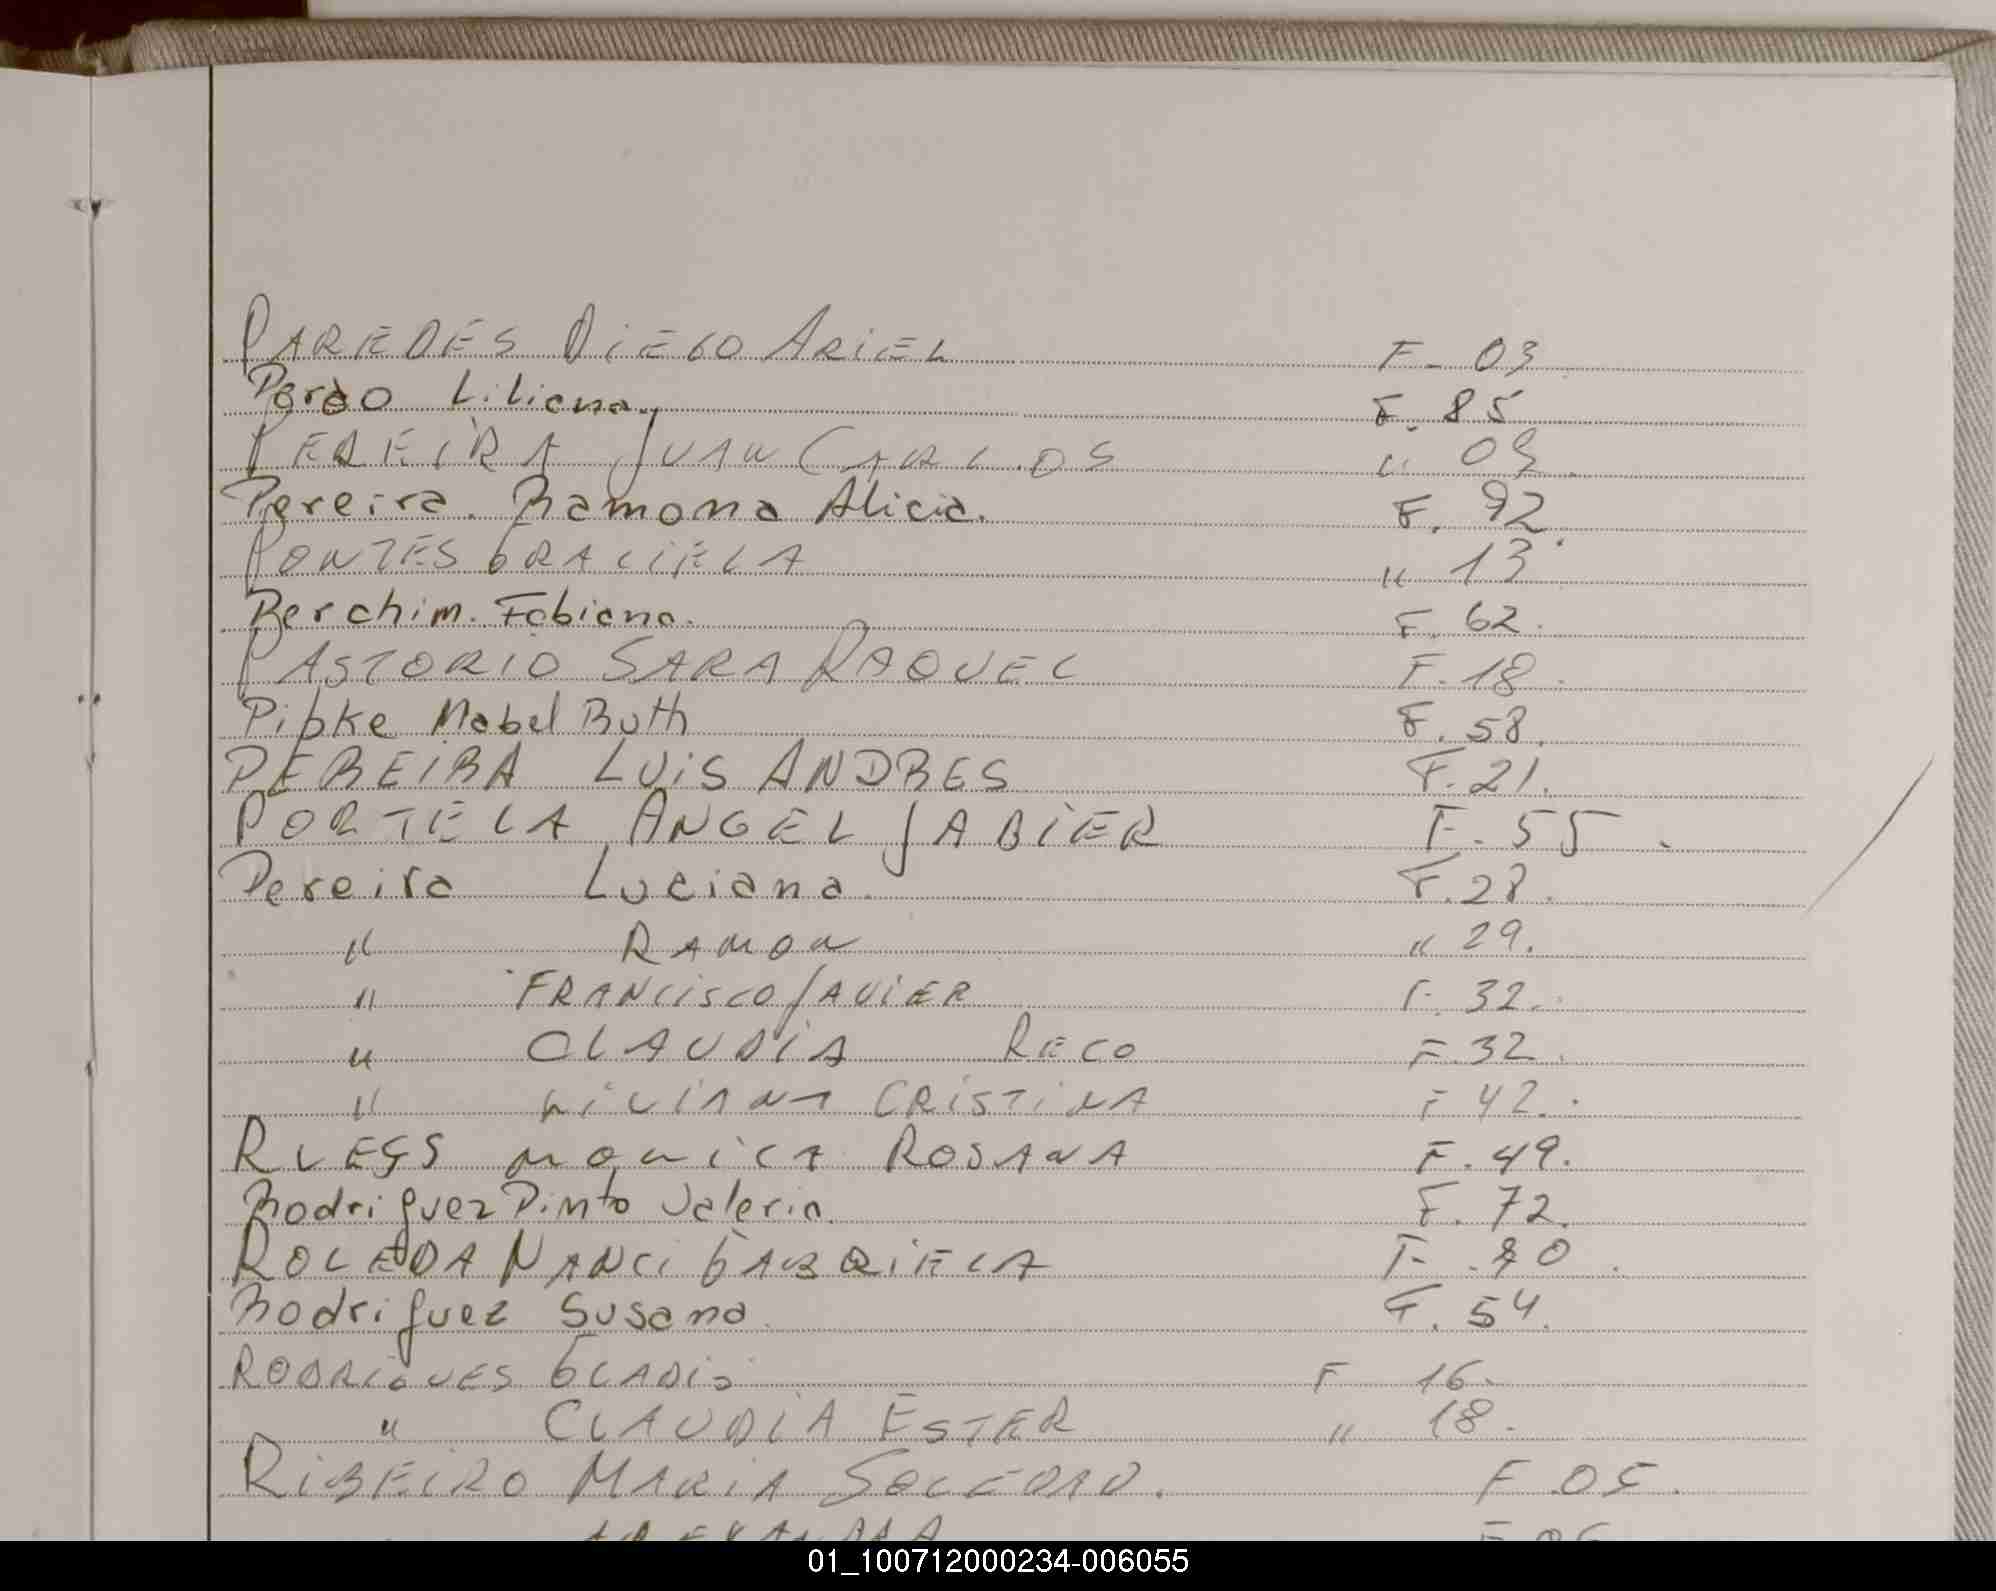 PAREDES DIEGO ARIEL F- 03
Pardo Liliana. F. 85
PEREIRA JUAN CARLOS " 09.
Pereira. Ramona Alicia. F. 92.
PONTES GRACIELA " 13.
Perchim. Fabiana. F. 62.
PASTORIO SARA RAQUEL F. 18.
Pipke Mabel Ruth F. 58.
PEREIRA LUIS ANDRES F. 21.
PORTELA ANGEL JABIER F. 55.
Pereira Luciana. F. 28.
" RAMON " 29.
" FRANCISCO JAVIER F. 32.
" CLAUDIA RECO F. 32.
" LILIANA CRISTINA F 42.
MONICA ROSANA F. 49.
Rodriguez Pinto Valeria. F. 72.
ROLEDA NANCI GABRIELA F.
Rodriguez Susana. F. 54.
RODRIGUES GLADIS F 16.
" CLAUDIA ESTER " 18.
RIBEIRO MARIA SOLEDAD. F. 05.
01_100712000234-006055